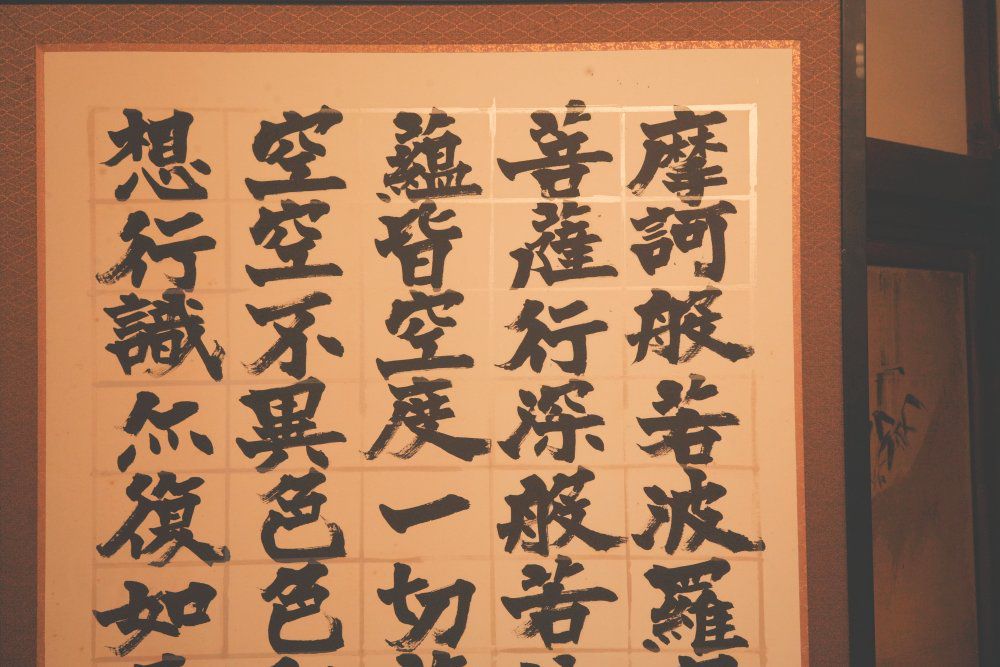 摩訶般若波羅
菩薩行深般若
蘊皆空度一切
空空不異色色
想行識亦復如